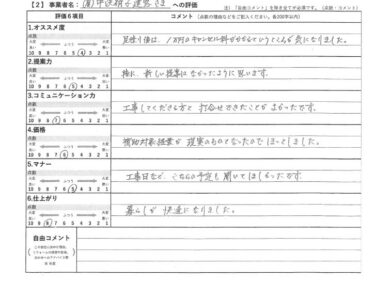 【2】事業者名： への評価
注）「自由コメント」を除き全て必須です。（点数・コメント）
評価6項目
コメント（点数の理由などをご記入ください。各200字以内）
1.オススメ度
点数
大変 ふつう 大変
10 9 8 7 6 5 4 3 2 1
見積り後は、1万円のキャンセル料がかかるというところが気になりました。
2.提案力
点数
大変 ふつう 大変
10 9 8 7 6 5 4 3 2 1
特に、新しい提案はなかったように思います。
3.コミュニケーション力
点数
大変 ふつう 大変
10 9 8 7 6 5 4 3 2 1
工事してくださる方と打合せできたことがよかったです。
4.価格
点数
大変 ふつう 大変
10 9 8 7 6 5 4 3 2 1
補助対象 が現実のものとなったので ました。
5.マナー
点数
大変 ふつう 大変
10 9 8 7 6 5 4 3 2 1
工事日など、こちらの予定も聞いてほしかったです
6.仕上がり
点数
大変 ふつう 大変
10 9 8 7 6 5 4 3 2 1
暮らしが快適になりました。
自由コメント